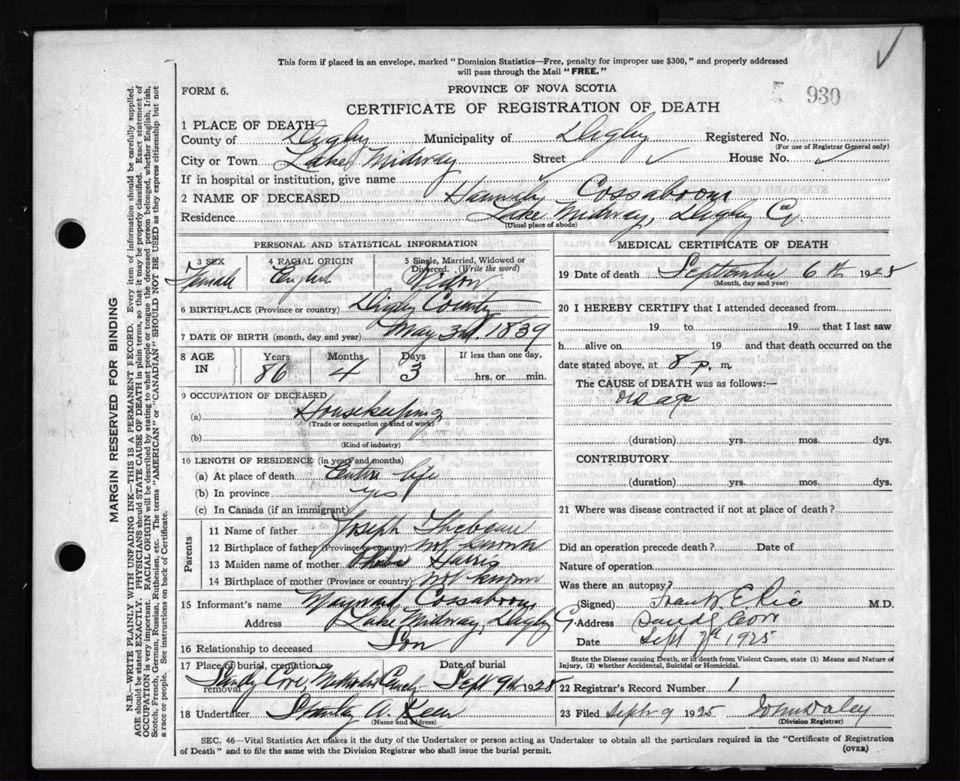 This form if placed in an envelope, marked "Dominion Statistics—Free, penalty for improper use $300," and properly addressed
will pass through the Mail "FREE."
FORM 6.
PROVINCE OF NOVA SCOTIA
930
CERTIFICATE OF REGISTRATION OF DEATH
1 PLACE OF DEATH
County of Digby Municipality of Digby Registered No.
(For use of Registrar General only)
City or Town Lake Midway Street ✓ House No. ✓
If in hospital or institution, give name
2 NAME OF DECEASED Hannah Cossaboom
Residence Lake Midway, Digby Co.
(Usual place of abode)
PERSONAL AND STATISTICAL INFORMATION
3 SEX 4 RACIAL ORIGIN 5 Single, Married, Widowed or Divorced. (Write the word)
Female English Widow
6 BIRTHPLACE (Province or country) Digby County
7 DATE OF BIRTH (month, day and year) May 3rd. 1839
8 AGE IN Years Months Days If less than one day,
86 4 3 hrs. or min.
9 OCCUPATION OF DECEASED
(a) Housekeeping
(Trade or occupation or kind of work)
(b)
(Kind of industry)
10 LENGTH OF RESIDENCE (in years and months)
(a) At place of death Entire life
(b) In province yes
(c) In Canada (if an immigrant)
Parents
11 Name of father Joseph
12 Birthplace of father (Province or country) not known
13 Maiden name of mother Harris
14 Birthplace of mother (Province or country) not known
15 Informant's name Maynard Cossaboom
Address Lake Midway, Digby Co.
16 Relationship to deceased Son
17 Place of burial, cremation or removal Date of burial
Sandy Cove, Sept 9th 1925
18 Undertaker Stanley A.
(Name and address)
MEDICAL CERTIFICATE OF DEATH
19 Date of death September 6th 1925
(Month, day and year)
20 I HEREBY CERTIFY that I attended deceased from
19 to 19 that I last saw
h alive on 19 and that death occurred on the
date stated above, at 8 p. m.
The CAUSE of DEATH was as follows:—
old age
(duration) yrs. mos. dys.
CONTRIBUTORY
(duration) yrs. mos. dys.
21 Where was disease contracted if not at place of death?
Did an operation precede death? Date of
Nature of operation
Was there an autopsy?
(Signed) Frank E. Rice M.D.
Address Sandy Cove
Date Sept 7th 1925
State the Disease causing Death, or in death from Violent Causes, state (1) Means and Nature of
Injury, (2) whether Accidental, Suicidal or Homicidal.
22 Registrar's Record Number 1
23 Filed Sept 9 1925
(Division Registrar)
SEC. 46—Vital Statistics Act makes it the duty of the Undertaker or person acting as Undertaker to obtain all the particulars required in the "Certificate of Registration
of Death" and to file the same with the Division Registrar who shall issue the burial permit.
(OVER)
MARGIN RESERVED FOR BINDING
N.B.—WRITE PLAINLY WITH UNFADING INK—THIS IS A PERMANENT RECORD. Every item of information should be carefully supplied.
AGE should be stated EXACTLY. PHYSICIANS should STATE CAUSE OF DEATH in plain terms, so that it may be properly classified. Exact statement of
OCCUPATION is very important. RACIAL ORIGIN will be described by stating to what people or tongue the deceased person belonged, whether English, Irish,
Scotch, French, German, Russian, Ruthenian, etc. The terms "AMERICAN" or "CANADIAN" SHOULD NOT BE USED as they express citizenship but not
a race or people. See instructions on back of Certificate.